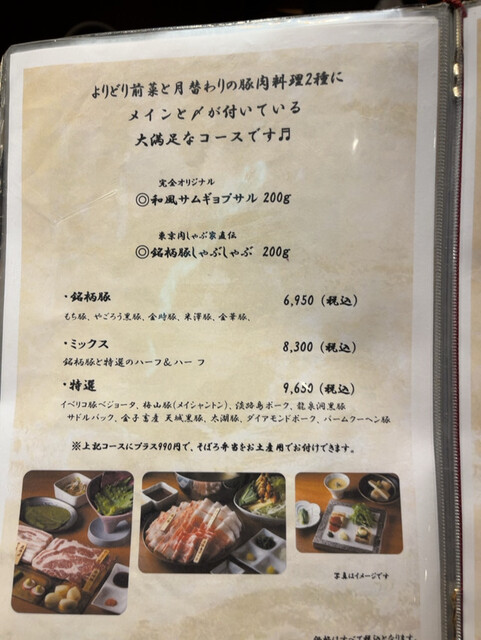 よりどり前菜と月替わりの豚肉料理2種に
メインと〆が付いている
大満足なコースです♬
完全オリジナル
◎和風サムギョプサル 200g
東京肉しゃぶ家直伝
◎銘柄豚しゃぶしゃぶ 200g
・銘柄豚 6,950 (税込)
もち豚、やごろう黒豚、金時豚、米澤豚、金華豚、
・ミックス 8,300 (税込)
銘柄豚と特選のハーフ&ハーフ
・特選 9,650 (税込)
イベリコ豚ベジョータ、梅山豚(メイシャントン)、淡路島ポーク、龍泉洞黒豚
サドルバック、金子畜産 天城黒豚、太湖豚、ダイアモンドポーク、バームクーヘン豚
※上記コースにプラス990円で、そぼろ弁当をお土産用でお付けできます。
写真はイメージです
価格はすべて税込となります。